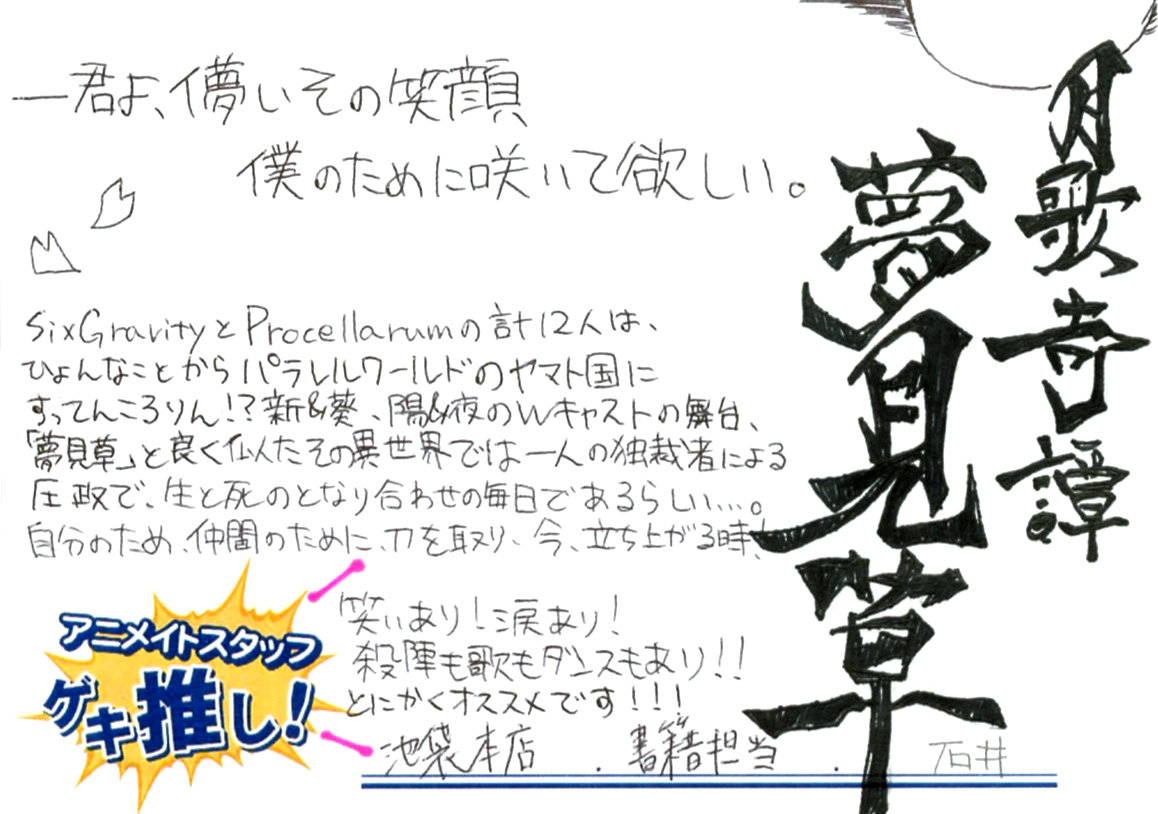 月歌奇譚
夢見草
―君よ、儚いその笑顔
僕のために咲いて欲しい。
SixGravityとProcellarumの計12人は、
ひょんなことからパラレルワールドのヤマト国に
すってんころりん!?新&葵、陽&夜のWキャストの舞台、
「夢見草」と良く似たその異世界では一人の独裁者による
圧政で、生と死のとなり合わせの毎日であるらしい…。
自分のため、仲間のために、刀を取り、今、立ち上がる時!
アニメイトスタッフ
ゲキ推し!
笑いあり!涙あり!
殺陣も歌もダンスもあり!!
とにかくオススメです!!!
池袋本店 . 書籍担当 . 石井